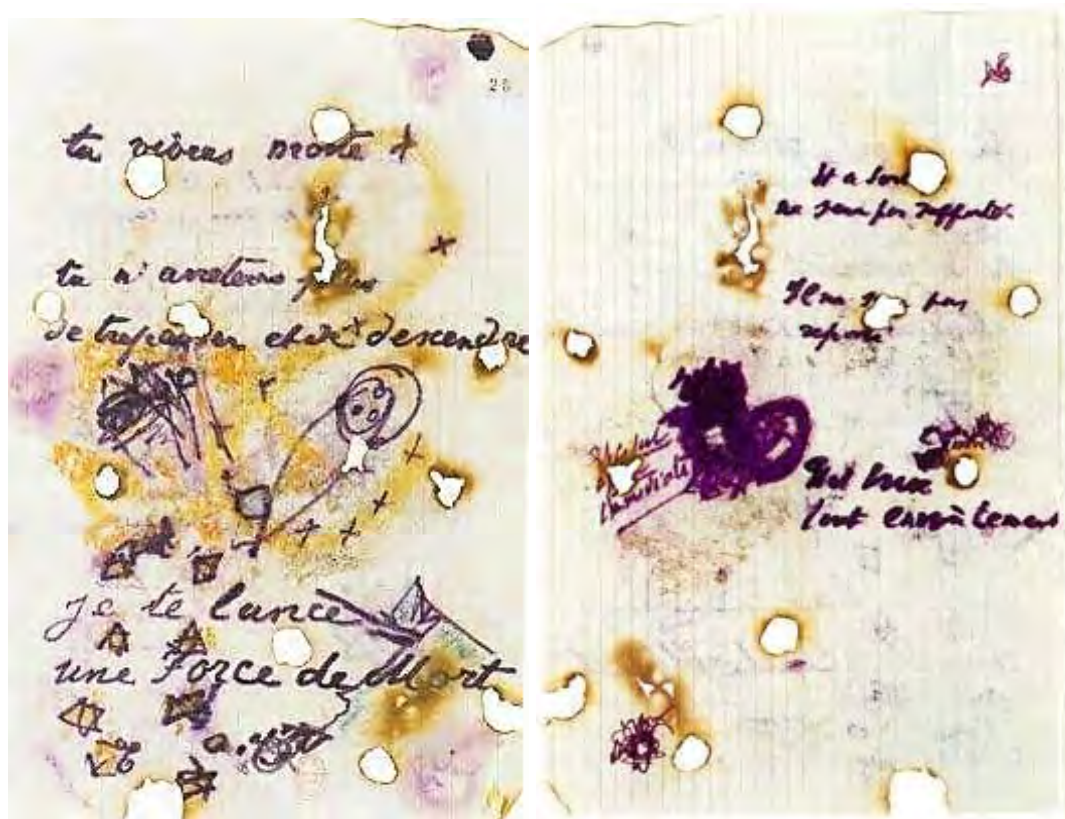 tu vivras morte
tu n'arreteras plus
de trepasser et de descendre
je te lance
une Force de Mort
Et ce Sort
ne sera pas rapporté.
Il ne sera pas
reporté
brise
tout envoûtement